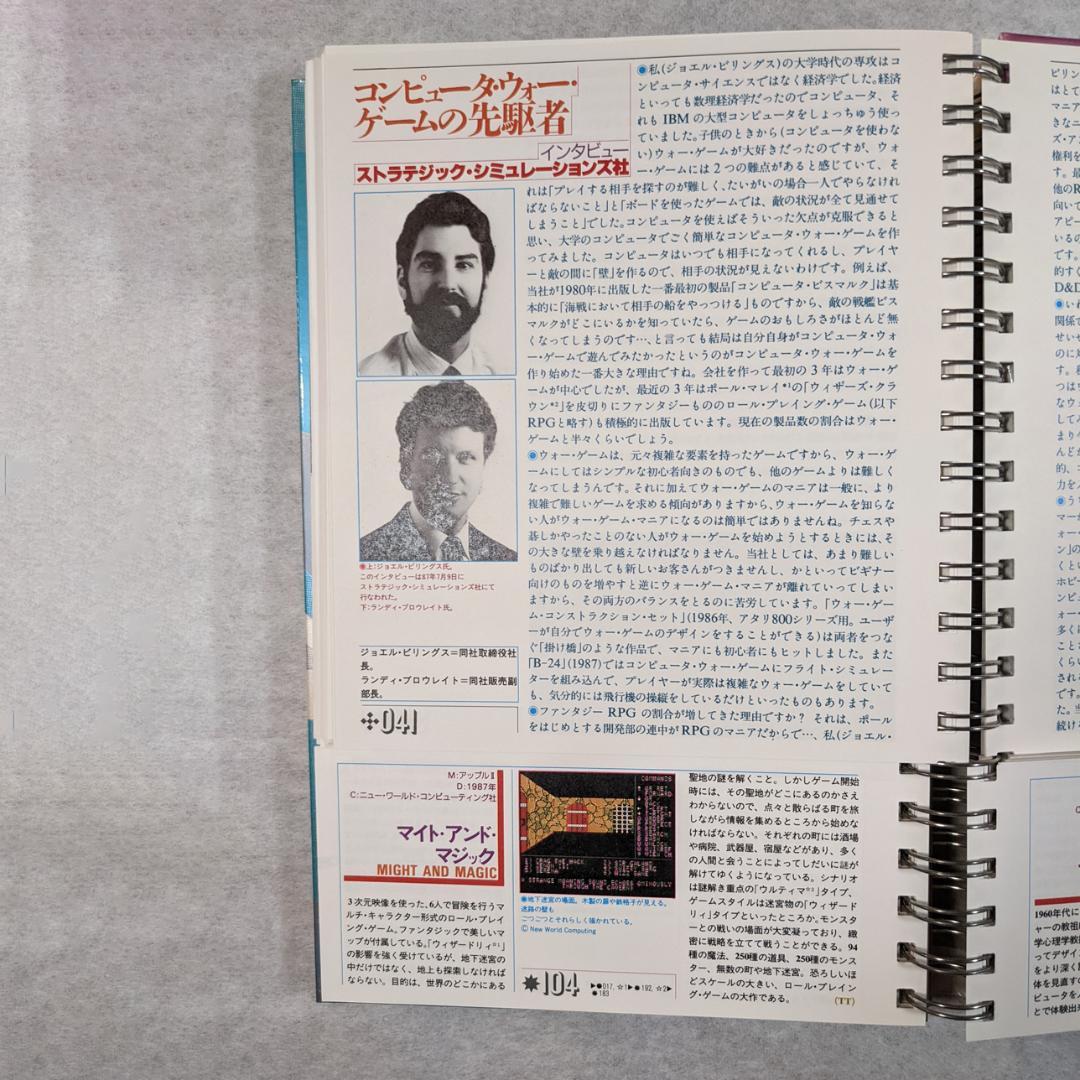 コンピュータ・ウォー・
ゲームの先駆者
インタビュー
ストラテジック・シミュレーションズ社
●上:ジョエル・ビリングス氏。
このインタビューは87年7月9日に
ストラテジック・シミュレーションズ社にて
行なわれた。
下:ランディ・ブロウレイト氏。
ジョエル・ビリングス=同社取締役社
長。
ランディ・ブロウレイト=同社販売副
部長。
041
●私(ジョエル・ビリングス)の大学時代の専攻はコ
ンピュータ・サイエンスではなく経済学でした。経済
といっても数理経済学だったのでコンピュータ、そ
れも IBM の大型コンピュータをしょっちゅう使っ
ていました。子供のときから(コンピュータを使わな
い)ウォー・ゲームが大好きだったのですが、ウォ
ー・ゲームには2つの難点があると感じていて、そ
れは「プレイする相手を探すのが難しく、たいがいの場合一人でやらなけれ
ばならないこと」と「ボードを使ったゲームでは、敵の状況が全て見通せて
しまうこと」でした。コンピュータを使えばそういった欠点が克服できると
思い、大学のコンピュータでごく簡単なコンピュータ・ウォー・ゲームを作
ってみました。コンピュータはいつでも相手になってくれるし、プレイヤ
ーと敵の間に「壁」を作るので、相手の状況が見えないわけです。例えば、
当社が1980年に出版した一番最初の製品「コンピュータ・ビスマルク」は基
本的に「海戦において相手の船をやっつける」ものですから、敵の戦艦ビス
マルクがどこにいるかを知っていたら、ゲームのおもしろさがほとんど無
くなってしまうのです…、と言っても結局は自分自身がコンピュータ・ウォ
ー・ゲームで遊んでみたかったというのがコンピュータ・ウォー・ゲームを
作り始めた一番大きな理由ですね。会社を作って最初の3年はウォー・ゲ
ームが中心でしたが、最近の3年はポール・マレイ*1の「ウィザーズ・クラ
ウン*2」を皮切りにファンタジーもののロール・プレイング・ゲーム(以下
RPGと略す)も積極的に出版しています。現在の製品数の割合はウォー・
ゲームと半々くらいでしょう。
●ウォー・ゲームは、元々複雑な要素を持ったゲームですから、ウォー・ゲ
ームにしてはシンプルな初心者向きのものでも、他のゲームよりは難しく
なってしまうんです。それに加えてウォー・ゲームのマニアは一般に、より
複雑で難しいゲームを求める傾向がありますから、ウォー・ゲームを知らな
い人がウォー・ゲーム・マニアになるのは簡単ではありませんね。チェスや
碁しかやったことのない人がウォー・ゲームを始めようとするときには、そ
の大きな壁を乗り越えなければなりません。当社としては、あまり難しい
ものばかり出しても新しいお客さんがつきませんし、かといってビギナー
向けのものを増やすと逆にウォー・ゲーム・マニアが離れていってしまい
ますから、その両方のバランスをとるのに苦労しています。「ウォー・ゲー
ム・コンストラクション・セット」(1986年、アタリ800シリーズ用。ユーザ
ーが自分でウォー・ゲームのデザインをすることができる)は両者をつな
ぐ「掛け橋」のような作品で、マニアにも初心者にもヒットしました。また
「B-24」(1987)ではコンピュータ・ウォー・ゲームにフライト・シミュレー
ターを組み込んで、プレイヤーが実際は複雑なウォー・ゲームをしていて
も、気分的には飛行機の操縦をしているだけといったものもあります。
●ファンタジー RPG の割合が増してきた理由ですか? それは、ポール
をはじめとする開発部の連中が RPG のマニアだからで…、私(ジョエル・
M:アップルⅡ
D:1987年
C:ニュー・ワールド・コンピューティング社
マイト・アンド・
マジック
MIGHT AND MAGIC
3次元映像を使った、6人で冒険を行うマ
ルチ・キャラクター形式のロール・プレイ
ング・ゲーム。ファンタジックで美しいマ
ップが付属している。「ウィザードリィ*1」
の影響を強く受けているが、地下迷宮の
中だけではなく、地上も探索しなければ
ならない。目的は、世界のどこかにある
COMMANDS
●地下迷宮の場面。木製の扉や鉄格子が見える。
迷路の壁も
ごつごつとそれらしく描かれている。
© New World Computing
104
▶●017, ☆1▶●192, ☆2▶
●183
聖地の謎を解くこと。しかしゲーム開始
時には、その聖地がどこにあるのかさえ
わからないので、点々と散らばる町を旅
しながら情報を集めるところから始めな
ければならない。それぞれの町には酒場
や病院、武器屋、宿屋などがあり、多く
の人間と会うことによってしだいに謎が
解けてゆくようになっている。シナリオ
は謎解き重点の「ウルティマ*2」タイプ、
ゲームスタイルは迷宮物の「ウィザード
リィ」タイプといったところか。モンスタ
ーとの戦いの場面が大変凝っており、緻
密に戦略を立てて戦うことができる。94
種の魔法、250種の道具、250種のモンス
ター、無数の町や地下迷宮。恐ろしいほ
どスケールの大きい、ロール・プレイン
グ・ゲームの大作である。 (TT)